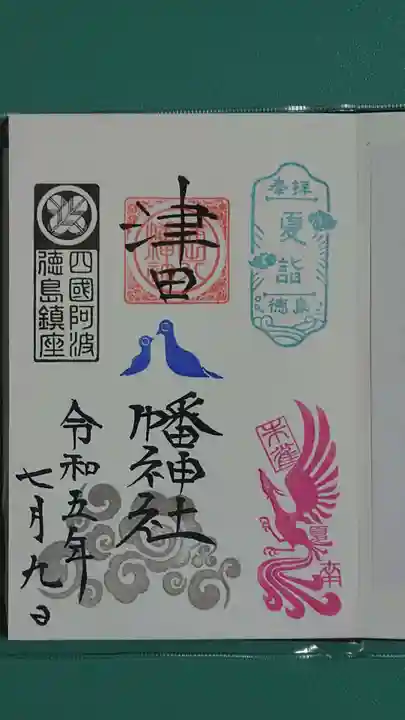 奉拝
夏詣
徳島
朱雀
夏
南
津田
八
幡神社
四國阿波
徳島鎮座
令和五年
七月九日